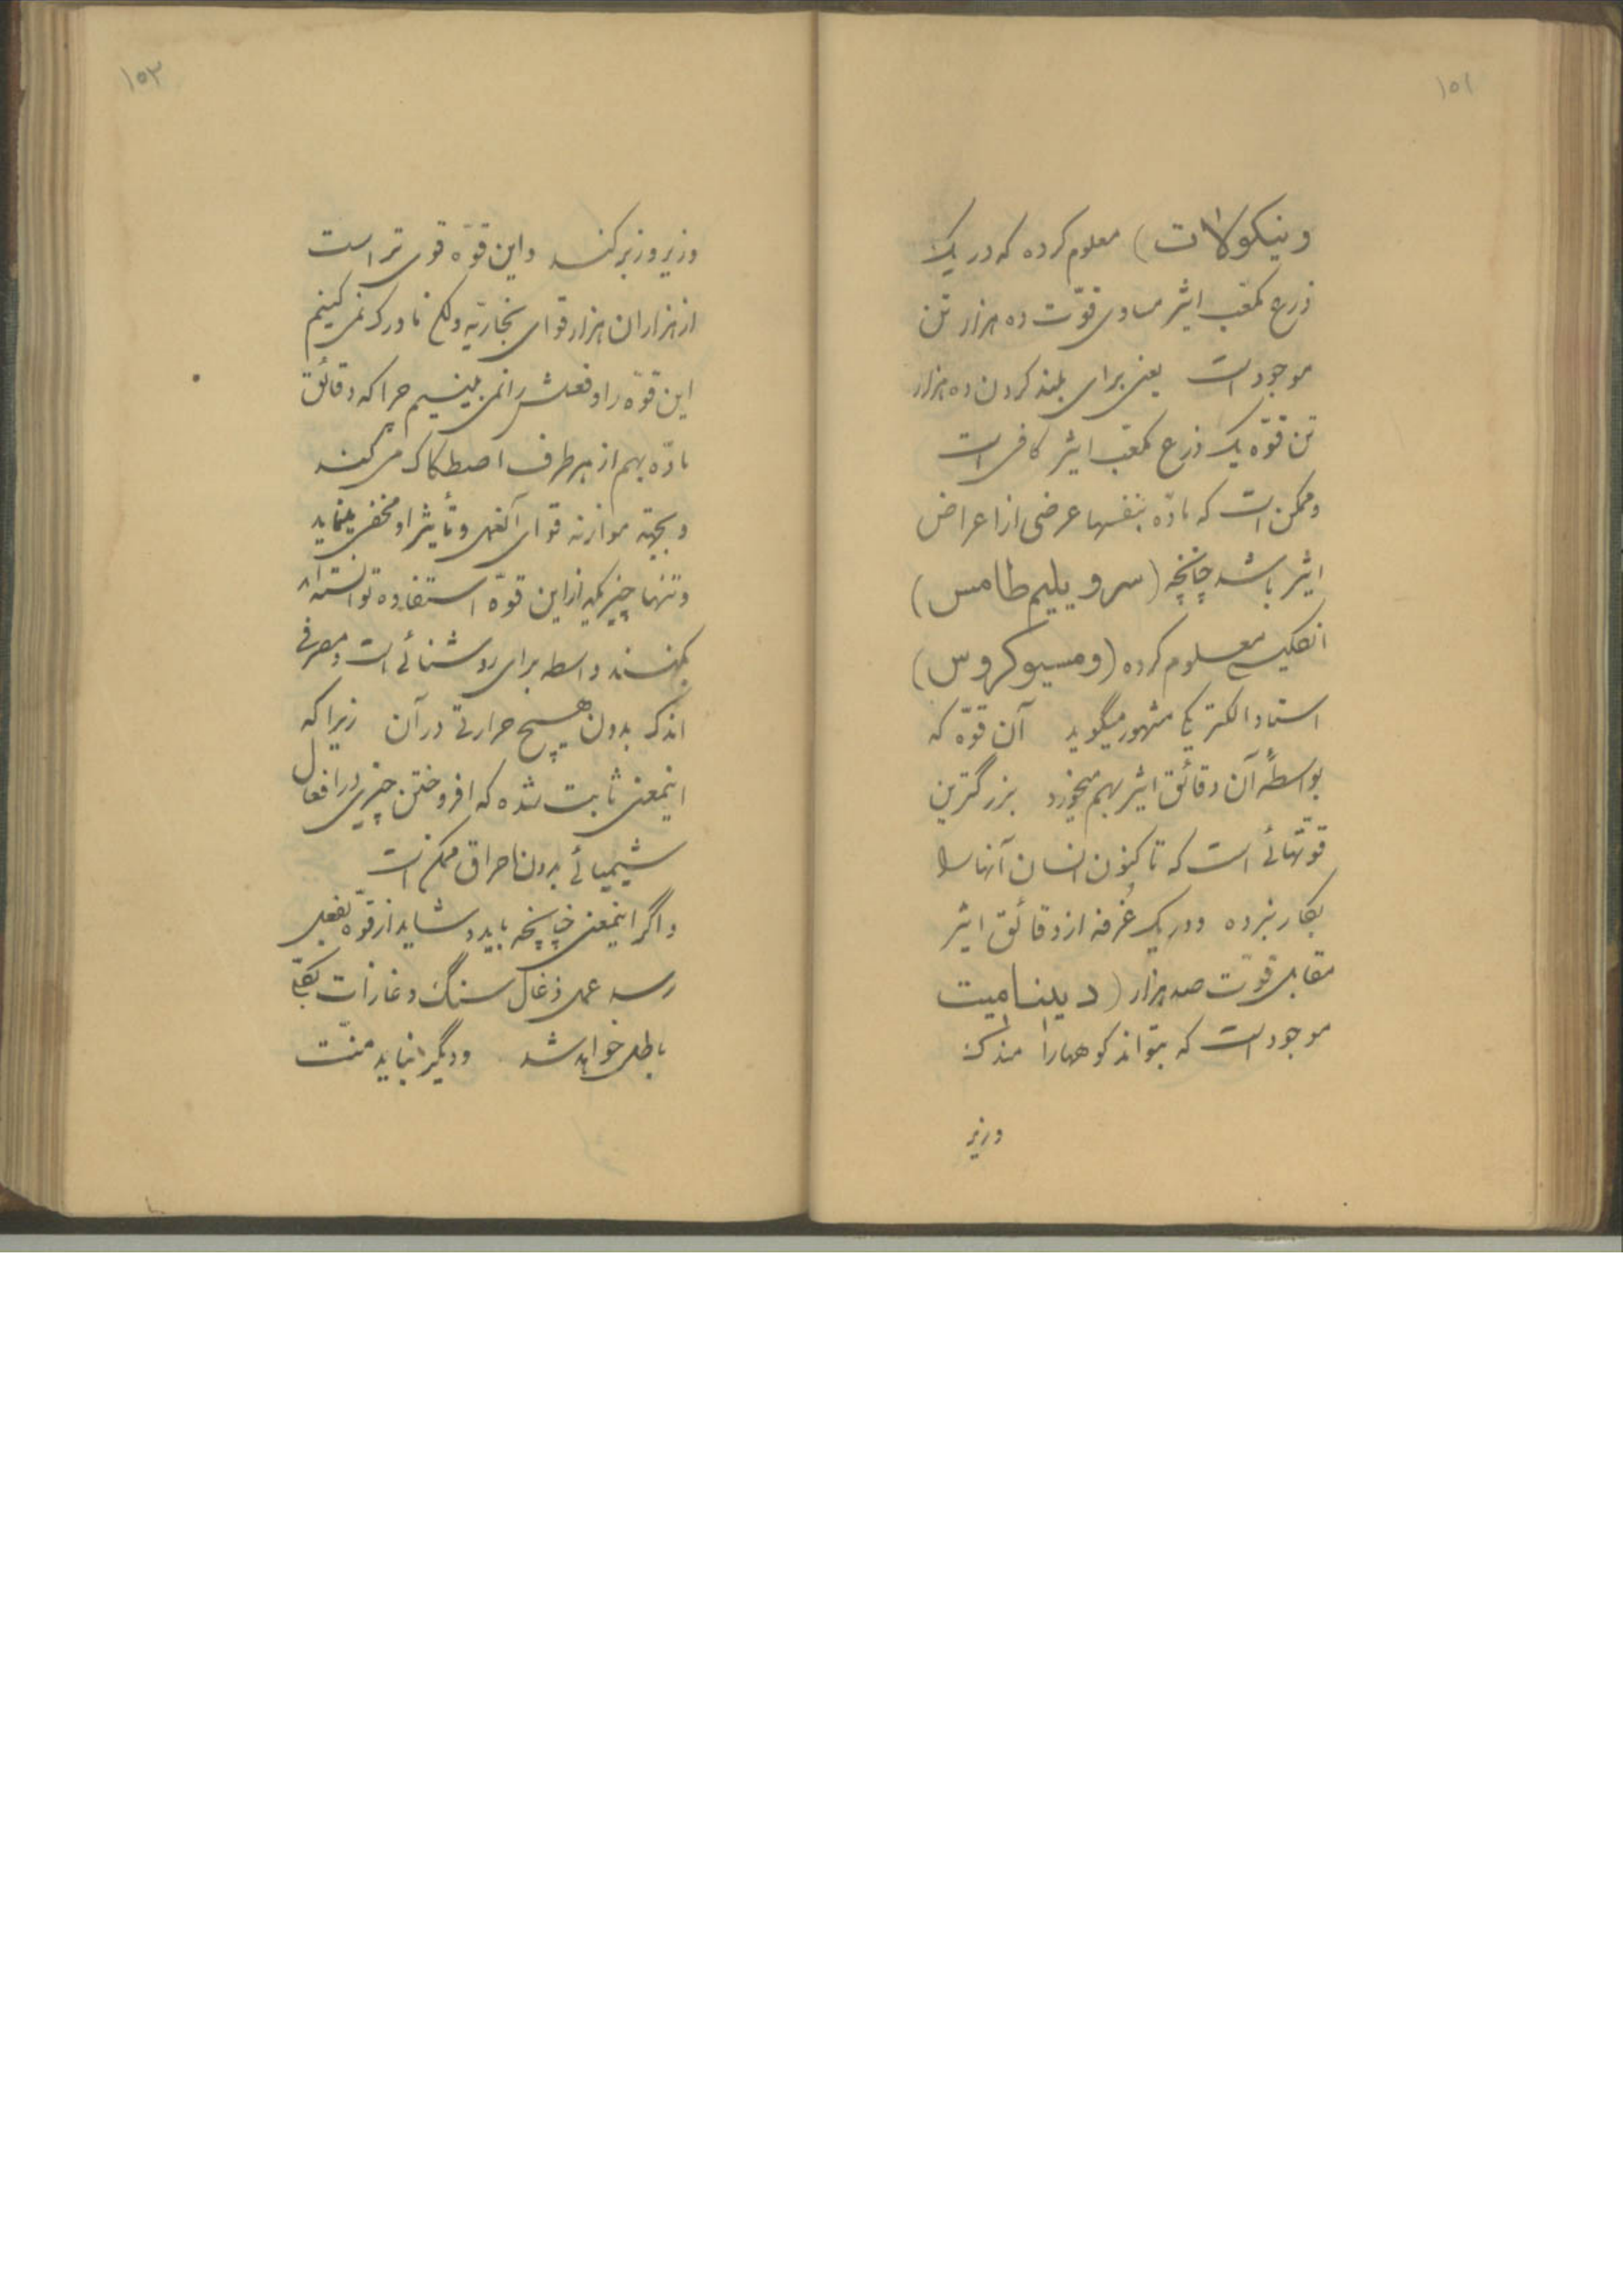 ۱۵۲
و نیکولات) معلوم کرده که در یک
ذرع مکعّب ایثر مساوی قوّت ده هزار تن
موجود است یعنی برای بلند کردن ده هزار
تن قوّه یک ذرع مکعّب ایثر کافی است
و ممکن است که مادّه بنفسها عرضی از اعراض
ایثر باشد چنانچه (سر ویلیم طامس)
انگلیسی معلوم کرده (ومسیو کروس)
استاد الکتریکی مشهور میگوید آن قوّه که
بواسطهٔ آن دقائق ایثر بهم میخورد بزرگترین
قوّتهائی است که تا کنون انسان آنها را
بکار نبرده و در یک غرفه از دقائق ایثر
مقابل قوّت صد هزار (دینامیت
موجود است که بتواند کوهها را مندک
وزیر
۱۵۳
وزیر و زبر کند و این قوّه قوی تر است
از هزاران هزار قوای بخاریّه ولکن ما درک نمی کنیم
این قوّه را و فعلش را نمی بینیم چرا که دقائق
مادّه بهم از هر طرف اصطکاک می کند
و بجهة موازنه قوای آنها و تأثیر او مخفی مینماید
و تنها چیزیکه از این قوّه استفاده توانسته اند
بکنند واسطه برای روشنائی است و مصرفی
اندک بدون هیچ حرارتی در آن زیرا که
اینمعنی ثابت شده که افروختن چیزی در افعال
شیمیائی بدون احراق ممکن است
و اگر اینمعنی چنانچه باید و شاید از قوّه بفعل
رسد عمل ذغال سنگ و غازات بکلّی
باطل خواهد شد و دیگر نباید منّت